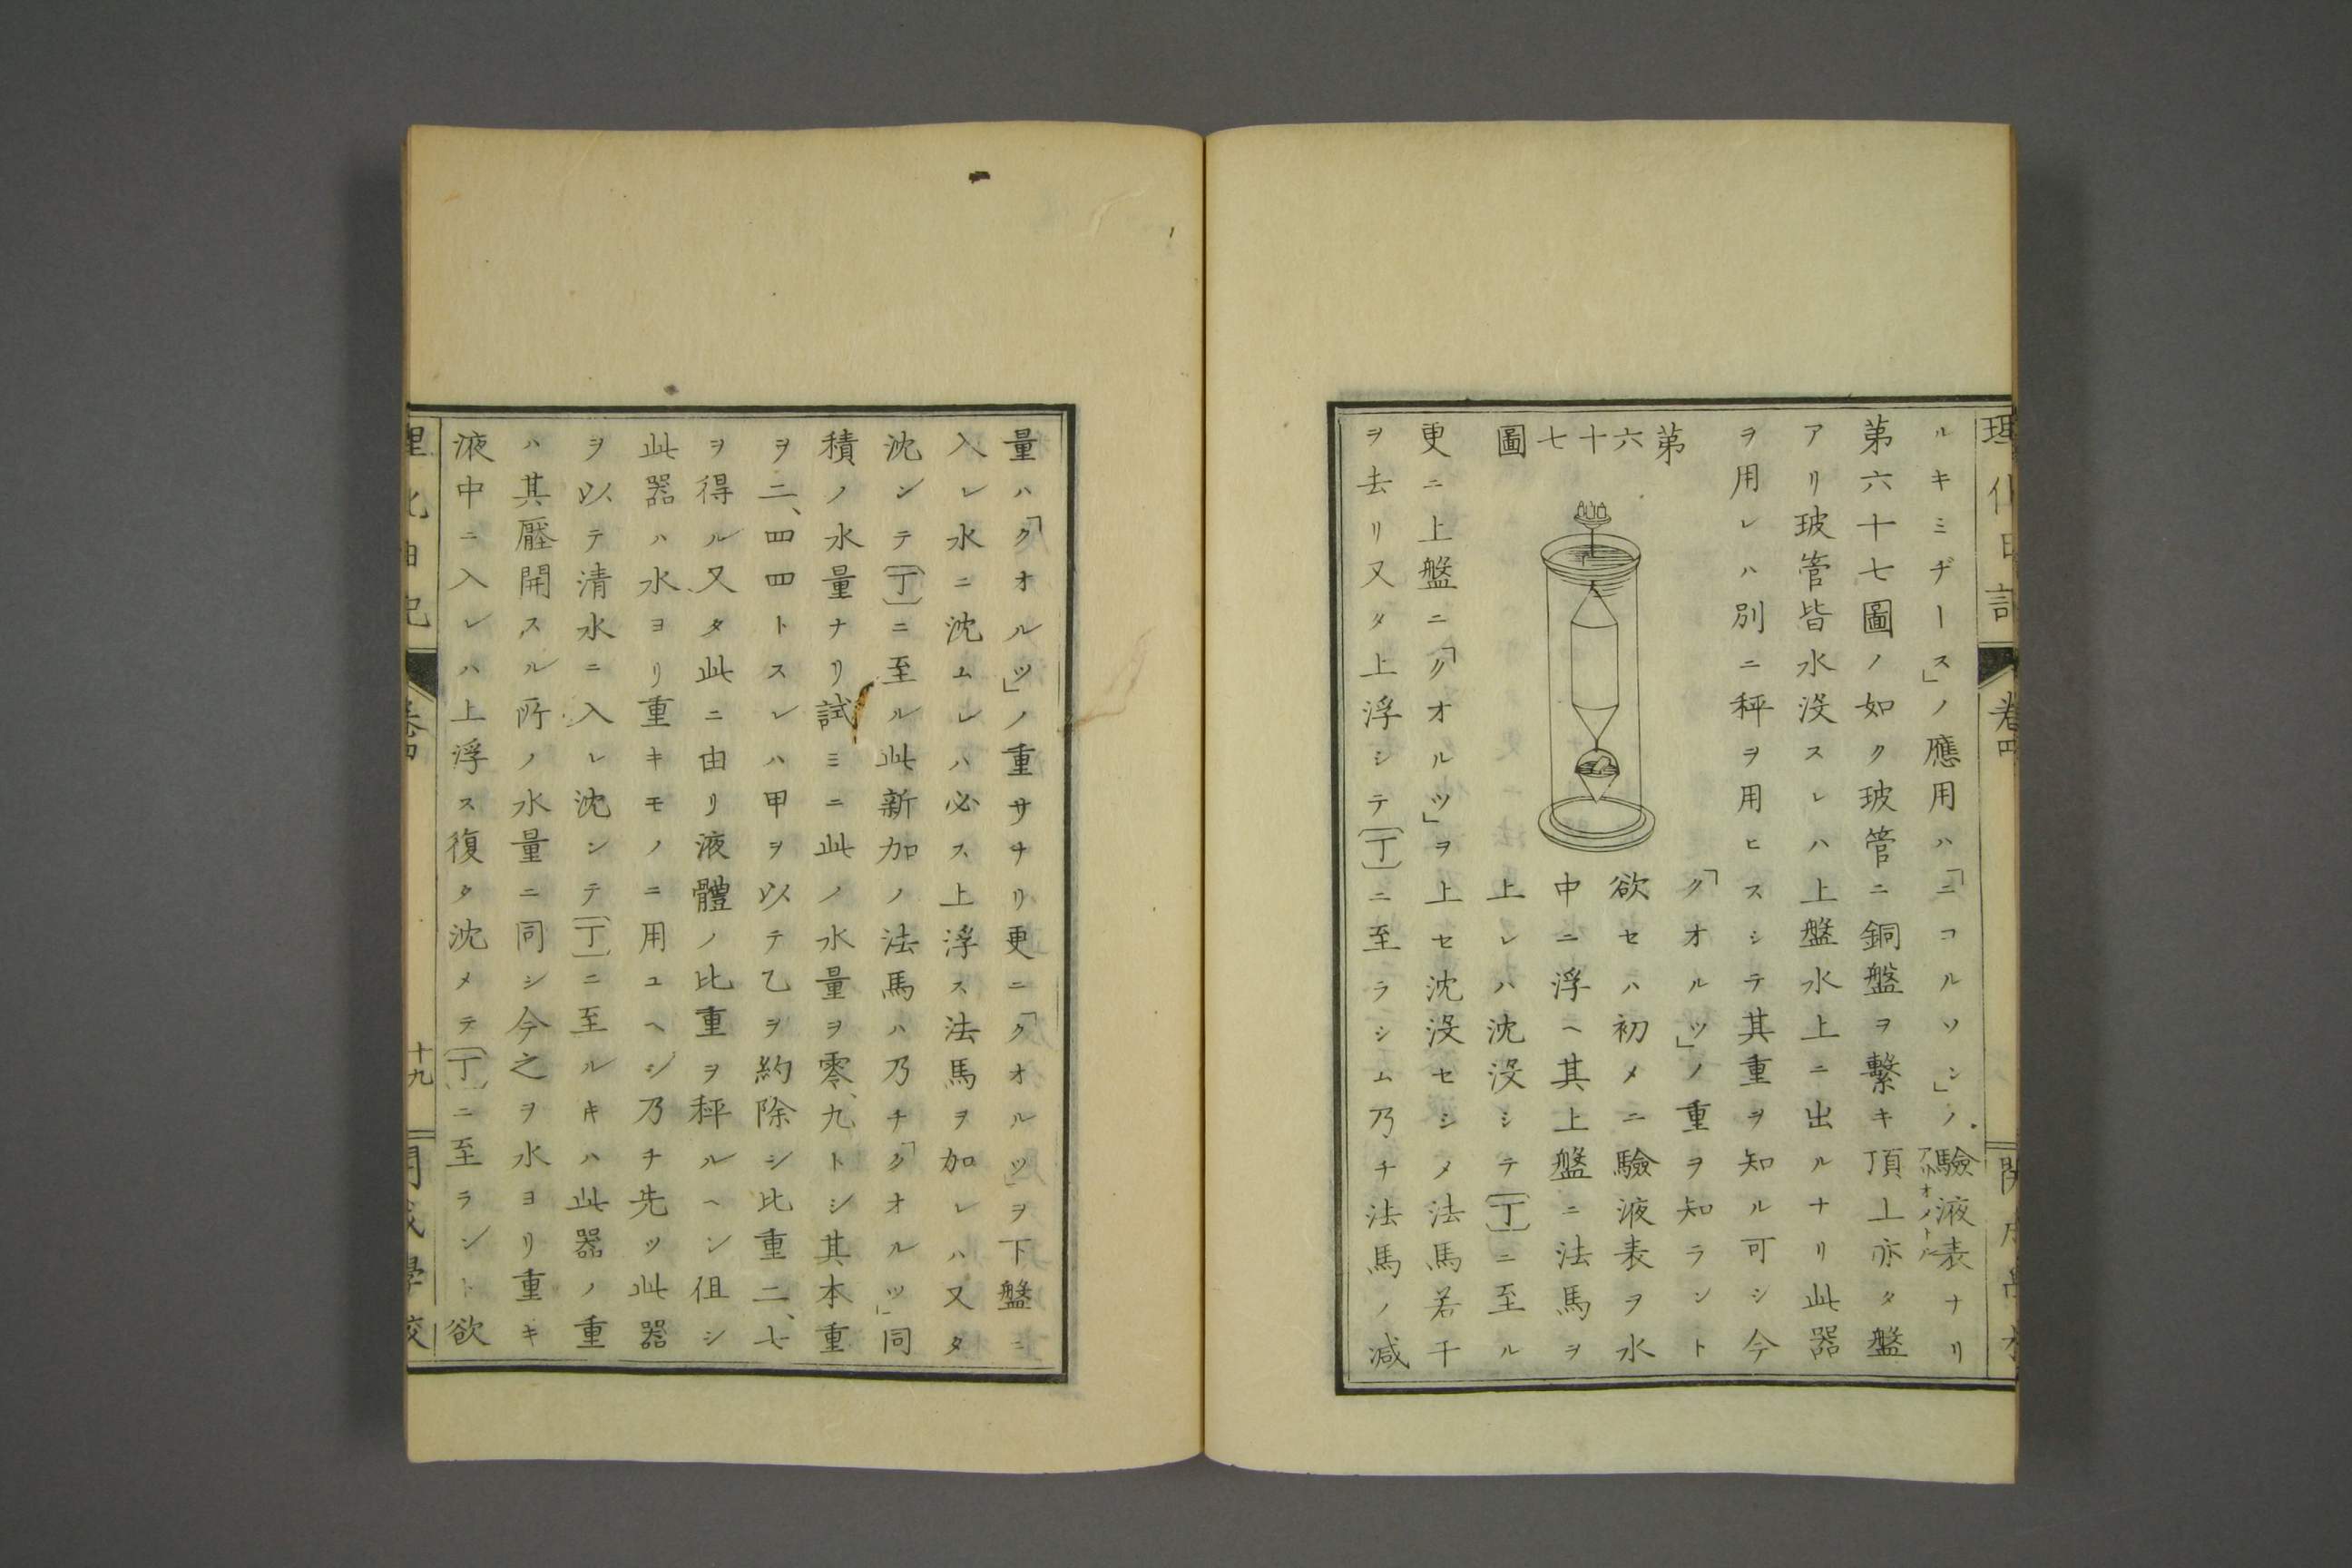 ルキミヂース」ノ應用ハ「ニコルソン」ノ驗液表ナリ
アリオメトル
第六十七圖ノ如ク玻管ニ銅盤ヲ繋キ頂上亦タ盤
アリ玻管皆水沒スレハ上盤水上ニ出ルナリ此器
ヲ用レハ別ニ秤ヲ用ヒスシテ其重ヲ知ル可シ今
第六十七圖
「クオルツ」ノ重ヲ知ラント
欲セハ初メニ驗液表ヲ水
中ニ浮ヘ其上盤ニ法馬ヲ
上レハ沈沒シテ(丁)ニ至ル
更ニ上盤ニ「クオルツ」ヲ上セ沈沒セシメ法馬若干
ヲ去リ又タ上浮シテ(丁)ニ至ラシム乃チ法馬ノ減
量ハ「クオルツ」ノ重サナリ更ニ「クオルツ」ヲ下盤ニ
入レ水ニ沈ムレハ必ス上浮ス法馬ヲ加レハ又タ
沈ンテ(丁)ニ至ル此新加ノ法馬ハ乃チ「クオルツ」同
積ノ水量ナリ試ミニ此ノ水量ヲ零、九トシ其本重
ヲ二、四四トスレハ甲ヲ以テ乙ヲ約除シ比重二、七
ヲ得ル又タ此ニ由リ液體ノ比重ヲ秤ルヘシ但シ
此器ハ水ヨリ重キモノニ用ユヘシ乃チ先ツ此器
ヲ以テ清水ニ入レ沈ンテ(丁)ニ至ルキハ此器ノ重
ハ其壓開スル所ノ水量ニ同シ今之ヲ水ヨリ重キ
液中ニ入レハ上浮ス復タ沈メテ(丁)ニ至ラント欲
卷四
十九